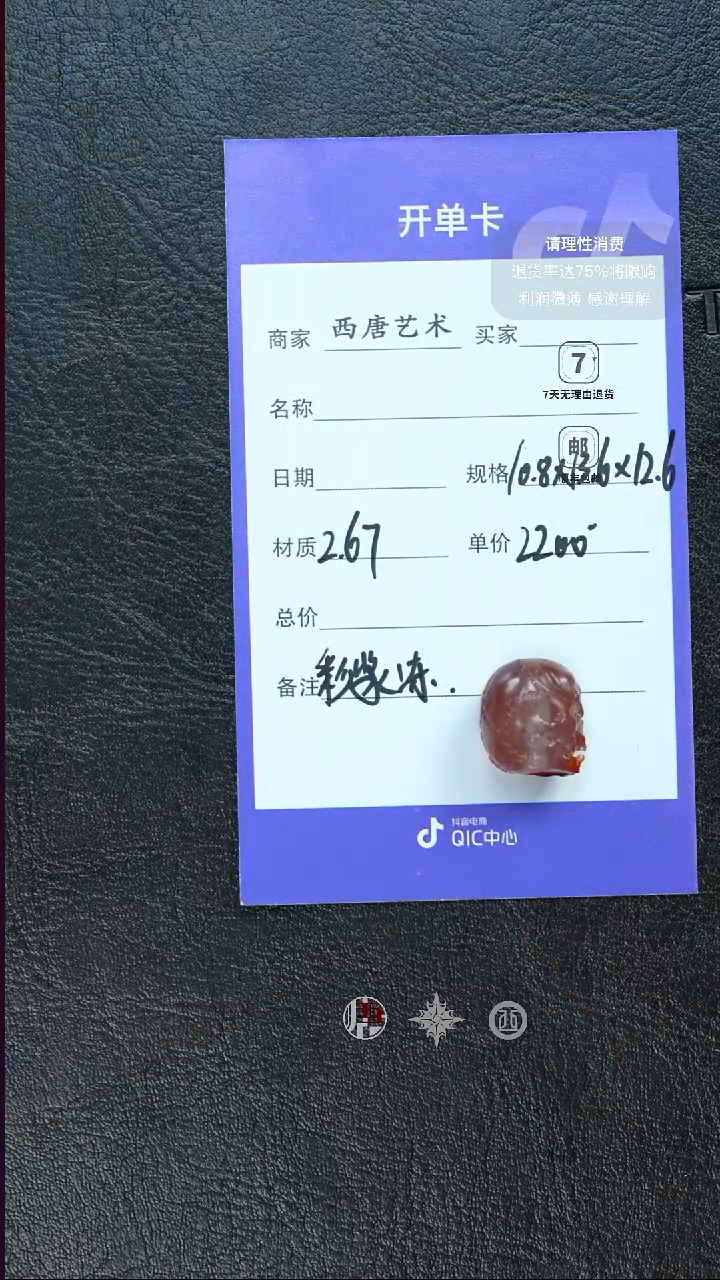 开单卡
请理性消费
退货率达75%将限购
利润微薄 感谢理解
商家 西唐艺术 买家
7
7天无理由退货
名称
邮
日期 规格 10.8x13.6x12.6
材质 2.67 单价 2200
总价
备注 紫冻..
抖音电商
QIC中心
西